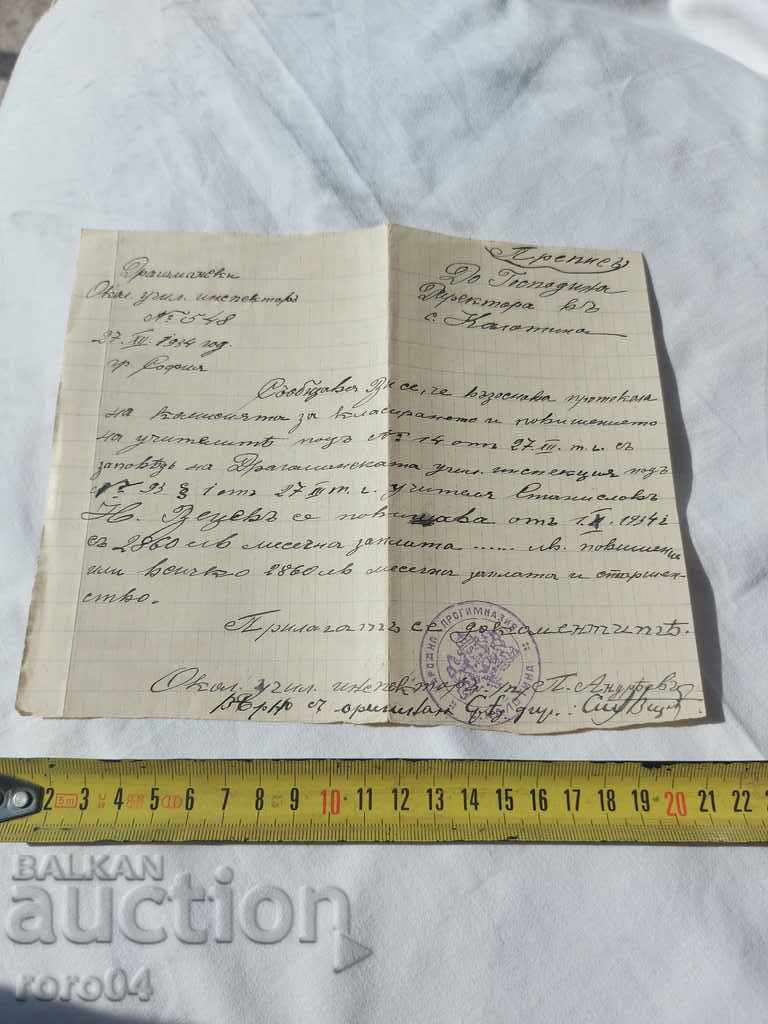 Преписъ
Драгоманска
Окол. учил. инспекторъ
№ 548
27. XII. 1934 год.
гр. София
До Господина
Директора въ
с. Калотина
Съобщава Ви се, че възоснова протокола
на комисията за класирането и повишението
на учителитѣ подъ № 14 отъ 27. XII. т. г. съ
заповѣдь на Драгоманската учил. инспекция подъ
№ 93 § 1 отъ 27 XII т. г. учителя Станиславъ
Н. Вецевъ се повишава отъ 1. 1934 г
съ 2860 лв месечна заплата ...... лв. повишение
или всичко 2860 лв месечна заплата и старшен-
ство.
Прилагатъ се документитѣ.
Окол. учил. инспекторъ: п. П. Андрѣевъ
Вѣрно съ оригинал дир.:
НАРОДНА ПРОГИМНАЗИЯ
КАЛОТИНА
2 5m 3 4 5 6 7 8 9 10 11 12 13 14 15 16 17 18 19 20 21 22
BALKAN
auction
roro04